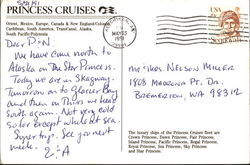 PRINCESS CRUISES
Orient, Mexico, Europe, Canada & New England/Colonial
Caribbean, South America, TransCanal, Alaska,
South Pacific/Polynesia
Dear P+N
We have come north to
Alaska on the Star Princess.
Today we are in Skagway.
Tomorrow on to Glacier Bay
and then on Thurs we head
South again. Not very cold
so far except whole at sea.
Super trip. See you next
week.
MAY 23
1991
USA
Mr & Mrs. NELSON MILLER
1808 MADRONA PT. DR.
BREMERTON, WA 98312
The luxury ships of the Princess Cruises fleet are
Crown Princess, Dawn Princess, Fair Princess,
Island Princess, Pacific Princess, Regal Princess,
Royal Princess, Sea Princess, Sky Princess
and Star Princess.